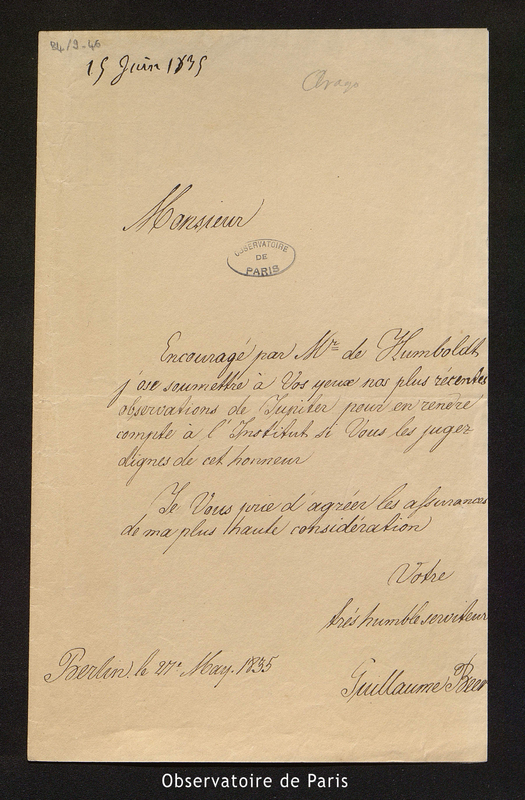 84/9-46
15 Juin 1835
Arago
Monsieur
OBSERVATOIRE
DE
PARIS
Encouragé par Mr de Humboldt
j'ose soumettre à Vos yeux nos plus récentes
observations de Jupiter pour en rendre
compte à l'Institut si Vous les jugez
dignes de cet honneur
Je Vous prie d'agréer les assurances
de ma plus haute considération
Votre
très humble serviteur
Berlin le 27e May. 1835
Guillaume Beer
Observatoire de Paris